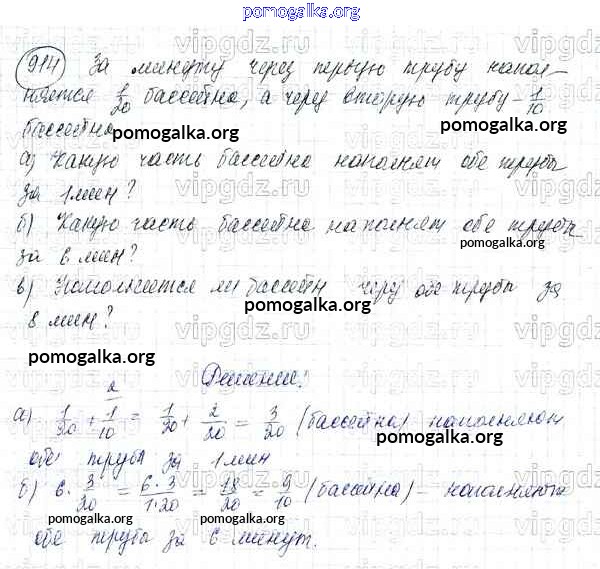 pomogalka.org
914 За минуту через первую трубу напол-
няется 1/20 бассейна, а через вторую трубу - 1/10
бассейна
pomogalka.org pomogalka.org
а) Какую часть бассейна наполнят обе трубы
за 1 мин?
б) Какую часть бассейна наполнят обе трубы
за 6 мин?
pomogalka.org
в) Наполнится ли бассейн через обе трубы за
8 мин?
pomogalka.org
pomogalka.org
Решение:
а) 1/20 + 1/10 (2 = 1/20 + 2/20 = 3/20 (бассейна) наполняют
pomogalka.org
обе трубы за 1 мин
б) 6 · 3/20 = 6·3/1·20 = 18/20 = 9/10 (бассейна) - наполняют
pomogalka.org pomogalka.org pomogalka.org
обе трубы за 6 минут.
vipgdz.ru